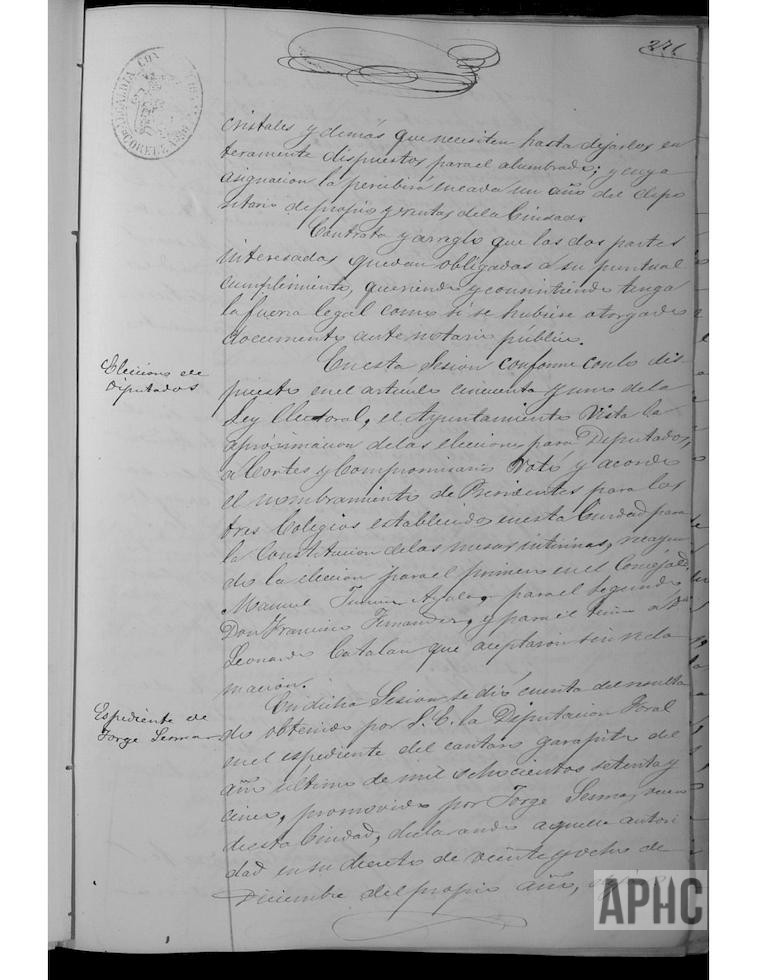 271
ALCALDIA CON
CORELLA
cristales y demás que necesiten hasta dejarlos en
teramente dispuestos para el alumbrado; y cuya
asignacion la percibirá en cada un año del depo
sitario de propios y rentas de la Ciudad.
Contrata y arreglo que las dos partes
interesadas quedan obligadas á su puntual
cumplimiento, queriendo y consintiendo tenga
la fuerza legal como si se hubiese otorgado
documento ante notario público.
Elecciones de
Diputados
En esta Sesion conforme con lo dis
puesto en el artículo cincuenta y uno de la
Ley Electoral, el Ayuntamiento Vista la
aprocsimacion de las elecciones para Diputados
á Cortes y Compromisario Votó y acordó
el nombramiento de Presidentes para los
tres Colegios establecidos en esta Ciudad para
la Constitucion de las mesas interinas, recayen
do la eleccion para el primero en el Concejal D.
Manuel Ayala, para el segundo
Don Francisco Fernandez, y para el tercero á D.
Leonardo Catalan que aceptaron sin recla
macion.
Espediente de
Jorge Sesma
En dicha Sesion se dió cuenta del resulta
do obtenido por S. E. la Diputacion Foral
en el espediente del cantaro garapito del
año último de mil ochocientos setenta y
cinco, promovido por Jorge Sesma, vecino
de esta Ciudad, declarando aquella autori
dad en su decreto de veinte y ocho de
Diciembre del propio año,
APHC